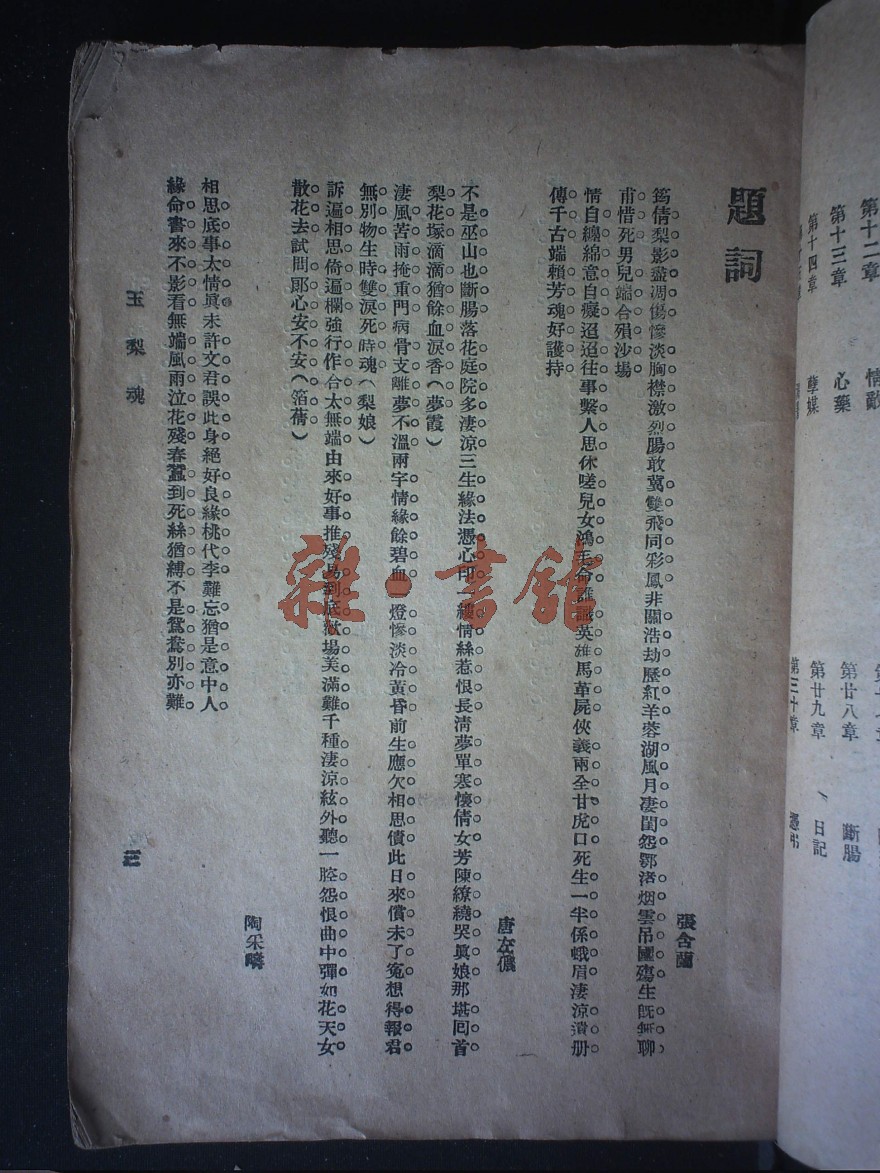 第十二章
情敵
第十三章
心藥
第十四章
孽媒
第廿八章
斷腸
第廿九章
日記
第三十章
憑弔
題詞
張含蘭
筠倩梨影盡凋傷慘淡胸襟激烈腸敢冀雙飛同彩鳳非關浩劫歷紅羊蓉湖風月凄閨怨鄂渚烟雲吊國殤生旣無聊
甫惜死男兒端合殞沙場
情自纏綿意自癡迢迢往事繫人思休嗟兒女鴻毛命誰識英雄馬革屍俠義兩全甘虎口死生一半係蛾眉凄涼遺册
傳千古端賴芳魂好護持
唐左儀
不是巫山也斷腸落花庭院多凄涼三生緣法憑心印一縷情絲惹恨長淸夢單寒懷倩女芳陳繚繞哭眞娘那堪囘首
梨花塚滴滴猶餘血淚香（夢霞）
凄風苦雨掩重門病骨支離夢不溫兩字情緣餘碧血一燈慘淡冷黃昏前生應欠相思債此日來償未了寃想得報君
無別物生時雙淚死時魂（梨娘）
訴遍相思倚遍欄強行作合太無端由來好事推殘易到底歡場美滿難千種淒涼絃外聽一腔怨恨曲中彈如花天女
散花去試問郞心安不安（筠倩）
陶采疇
相思底事太情眞未許文君誤此身絕好良緣桃代李難忘猶是意中人
緣命書來不影看無端風雨泣花殘春蠶到死絲猶縛不是鴛鴦別亦難
玉梨魂
三
雜·書舘